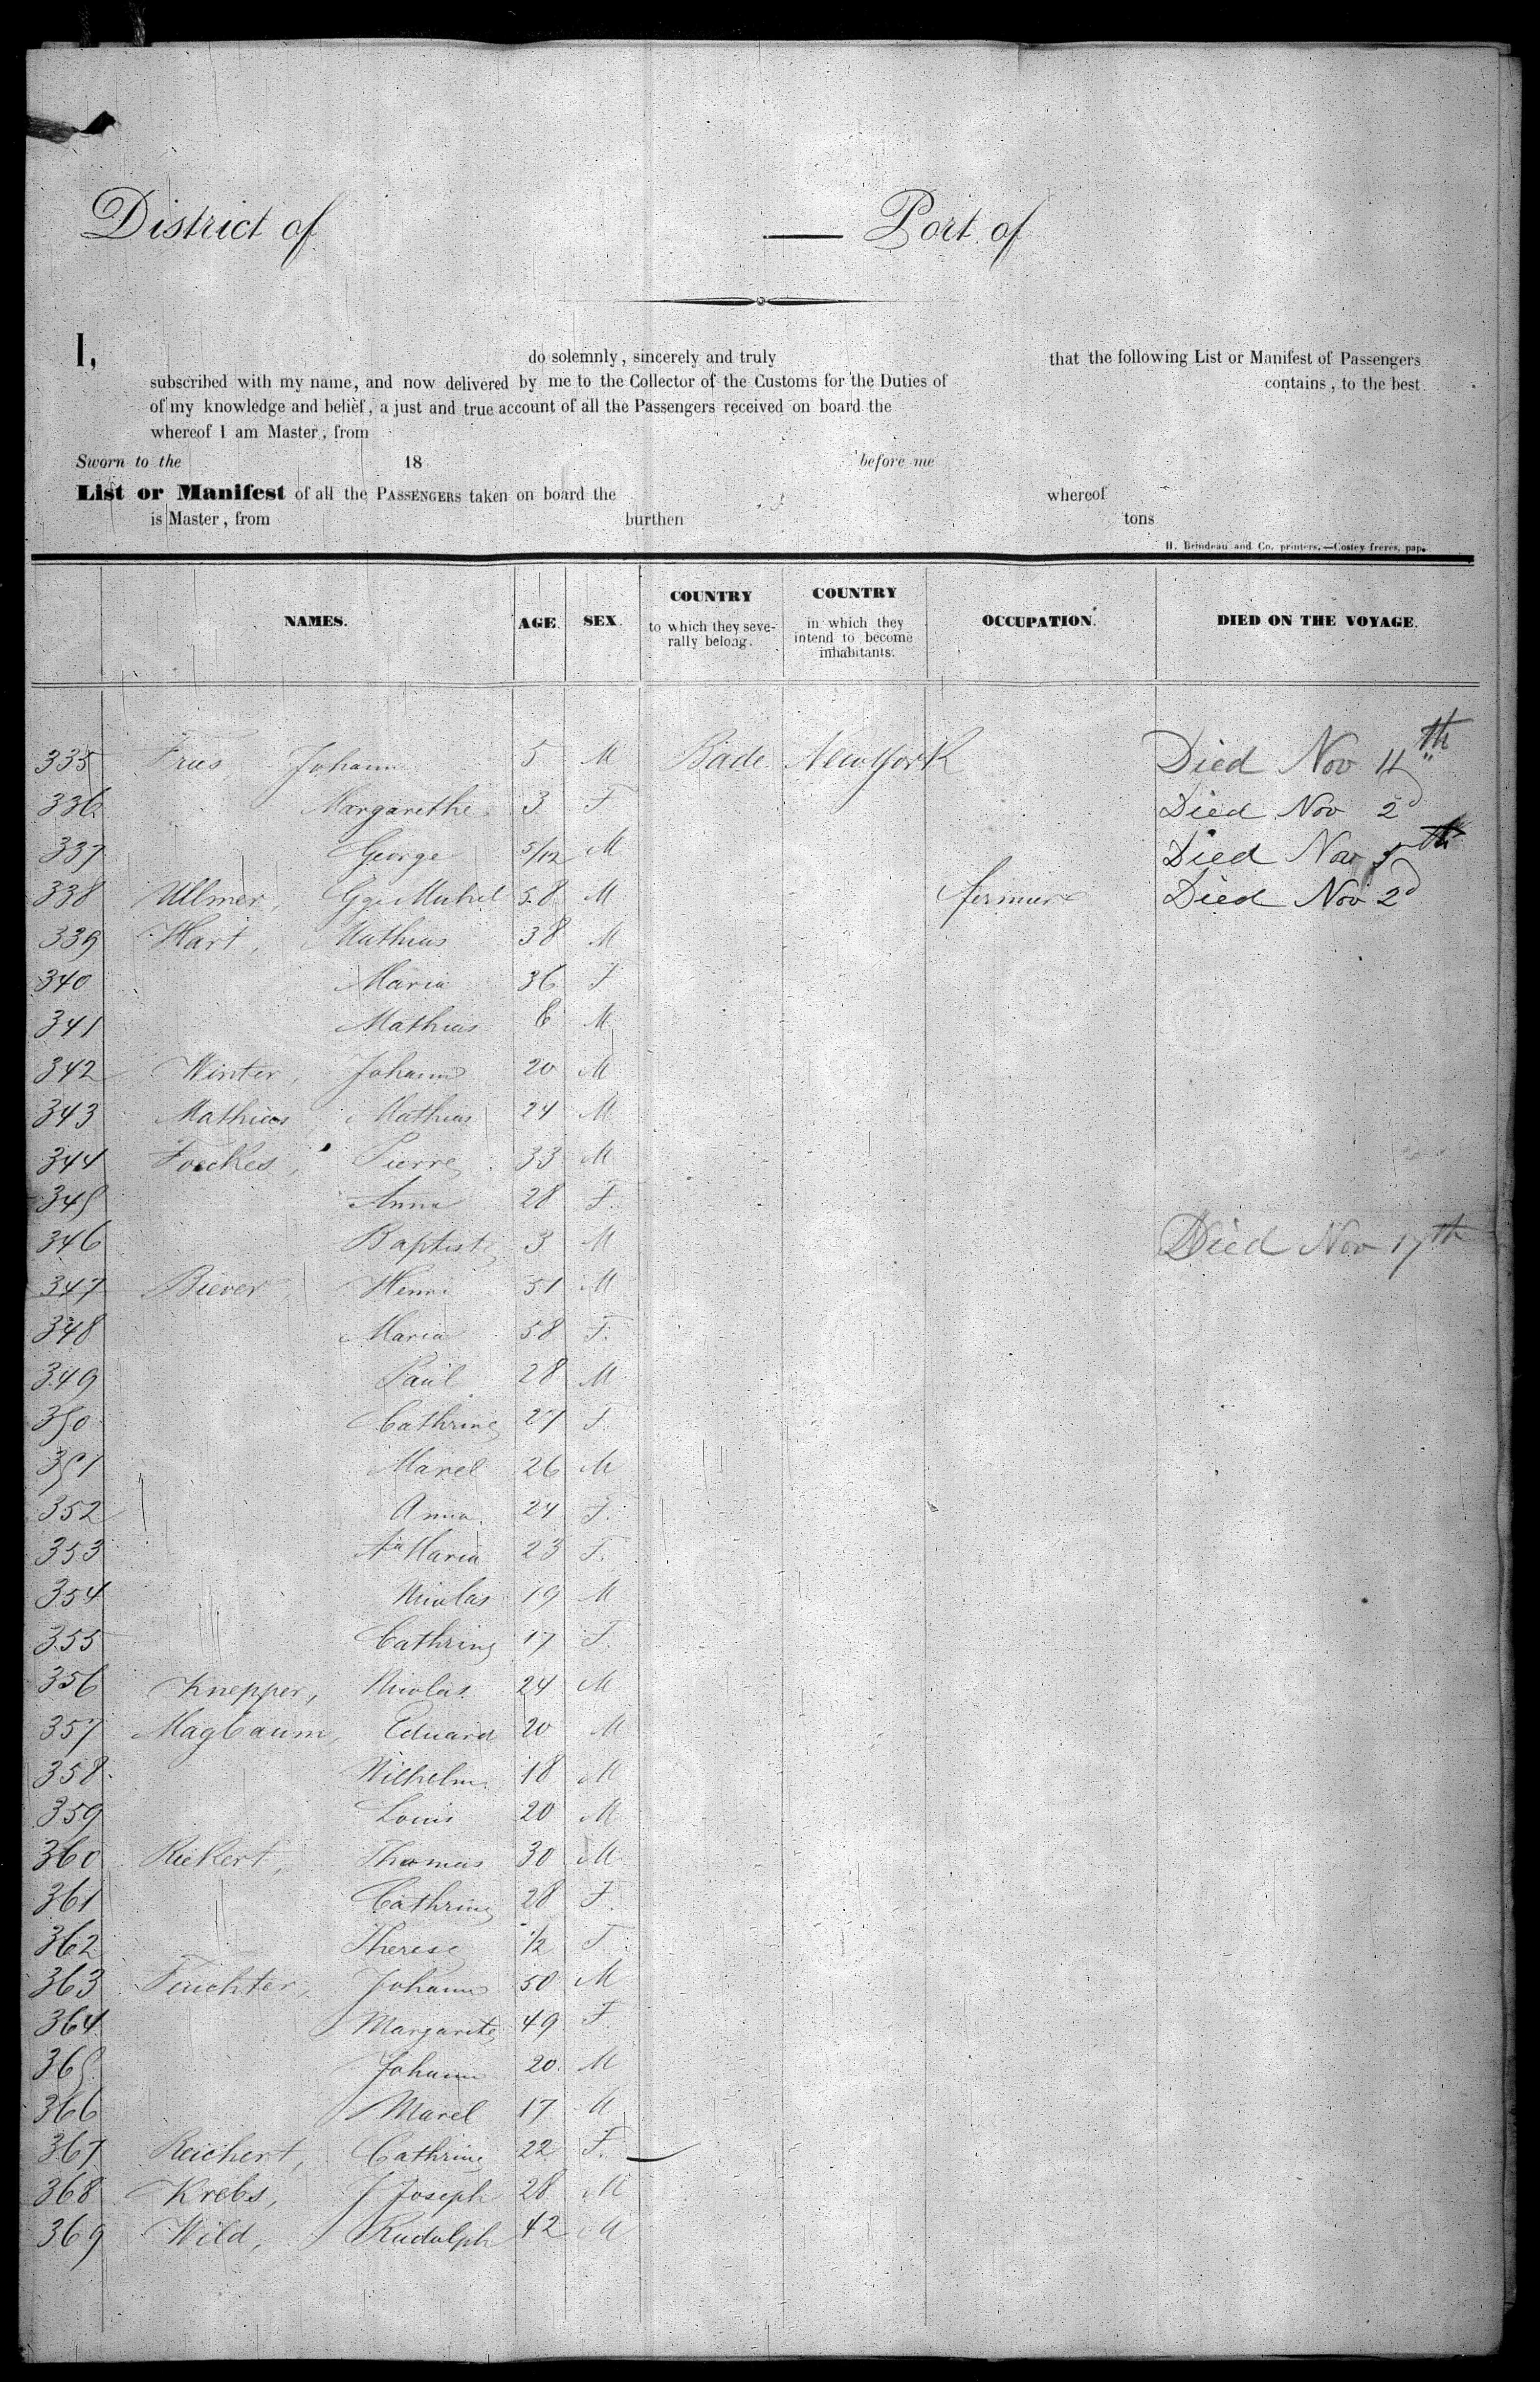 District of — Port of
I, do solemnly, sincerely and truly that the following List or Manifest of Passengers
subscribed with my name, and now delivered by me to the Collector of the Customs for the Duties of contains, to the best
of my knowledge and belief, a just and true account of all the Passengers received on board the
whereof I am Master, from
Sworn to the 18 before me
List or Manifest of all the PASSENGERS taken on board the whereof
is Master, from burthen tons
H. Brindeau and Co, printers,—Costey freres, pap.
NAMES. AGE. SEX. COUNTRY to which they seve-rally belong. COUNTRY in which they intend to become inhabitants. OCCUPATION. DIED ON THE VOYAGE.
335 Fries, Johann 5 M Bade New York Died Nov 4th
336 Margarethe 3 F Died Nov 2d
337 George 5/12 M Died Nov 5th
338 Ullmer 58 M Died Nov 2d
339 Hart, Mathias 38 M
340 Maria 36 F
341 Mathias 6 M
342 Winter, Johann 20 M
343 Mathias, Mathias 24 M
344 Foeckes, Pierre 33 M
345 Anna 28 F.
346 Baptiste 3 M Died Nov 17th
347 Biever, Henri 51 M
348 Maria 58 F.
349 Paul 28 M
350 Cathrine 27 F.
351 Marel 26 M
352 Anna 24 F.
353 Aa Maria 23 F.
354 Nicolas 19 M
355 Cathrine 17 F.
356 Knepper, Nicolas 24 M
357 Magbaum, Eduard 20 M
358 Wilhelm 18 M
359 Louis 20 M
360 Rickert, Thomas 30 M
361 Cathrine 28 F.
362 Therese 1/2 F.
363 Feuchter, Johann 50 M
364 Margarite 49 F.
365 Johann 20 M
366 Marel 17 M
367 Reichert, Cathrine 22 F.
368 Krebs, J Joseph 28 M
369 Wild, Rudolph 42 M